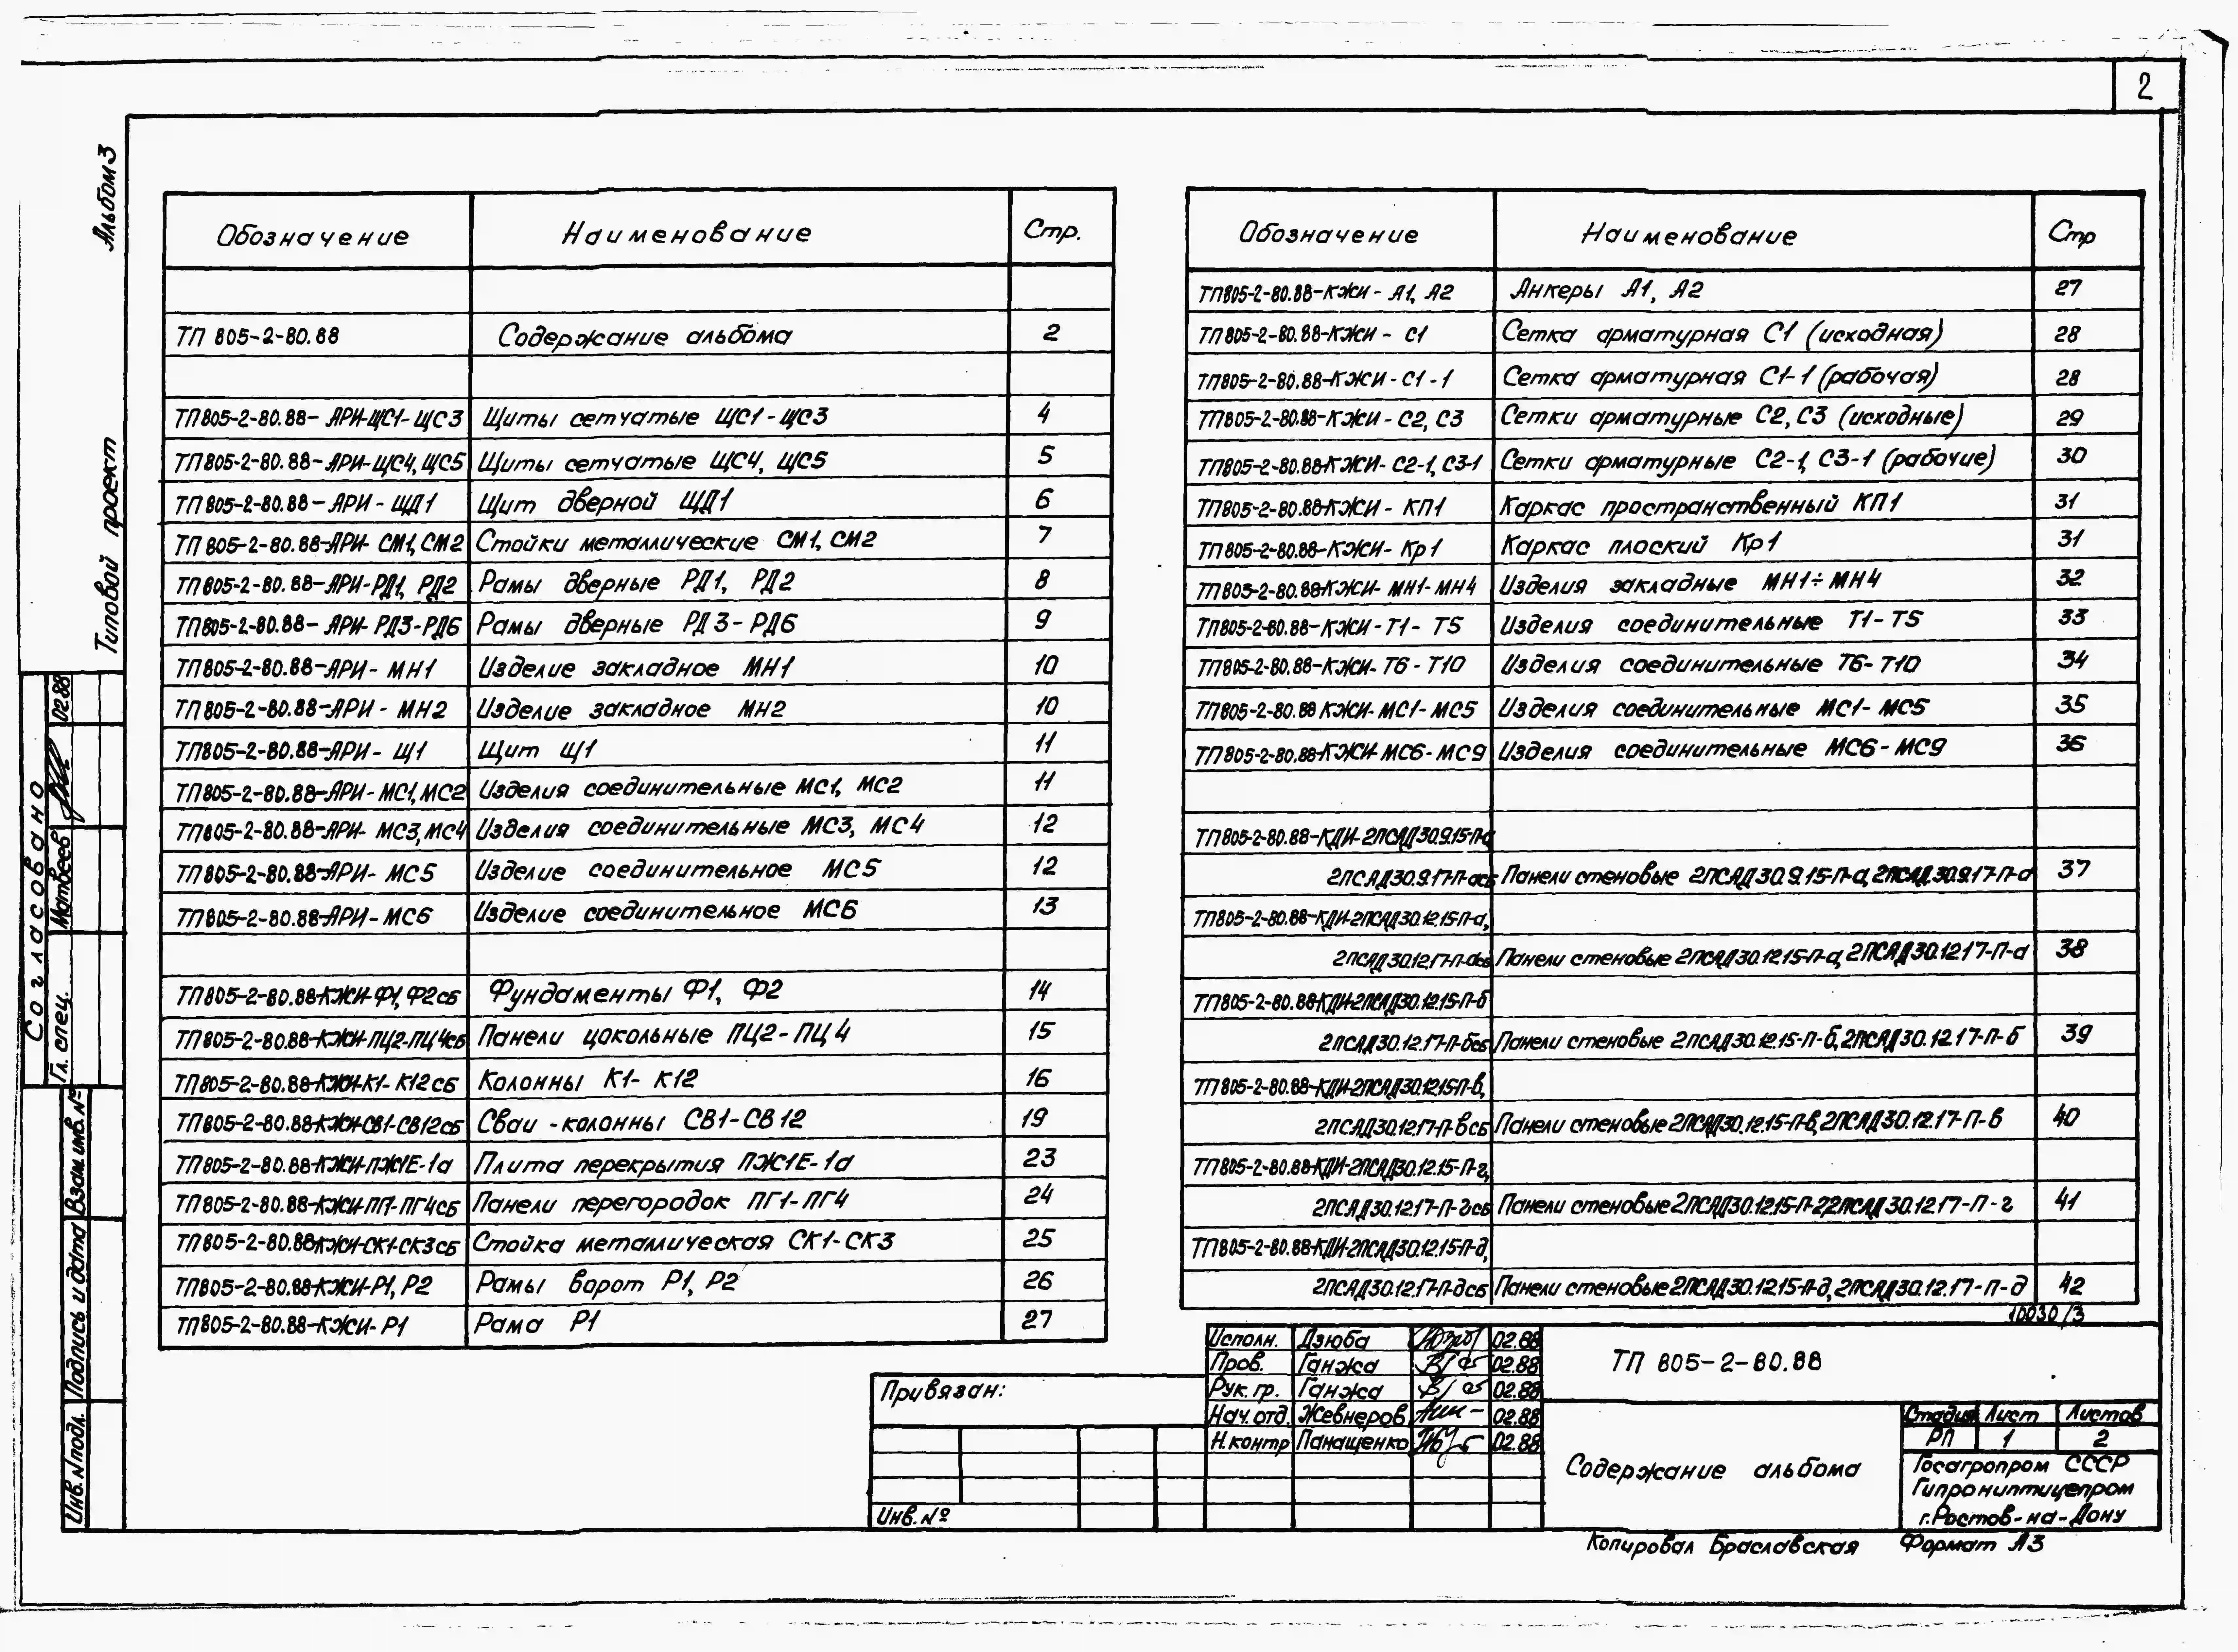 2
Альбом 3
Типовой проект
Обозначение Наименование Стр.
ТП 805-2-80.88 Содержание альбома 2
ТП 805-2-80.88-АРИ-ЩС1-ЩС3 Щиты сетчатые ЩС1-ЩС3 4
ТП 805-2-80.88-АРИ-ЩС4,ЩС5 Щиты сетчатые ЩС4, ЩС5 5
ТП 805-2-80.88-АРИ-ЩД1 Щит дверной ЩД1 6
ТП 805-2-80.88-АРИ-СМ1,СМ2 Стойки металлические СМ1, СМ2 7
ТП 805-2-80.88-АРИ-РД1, РД2 Рамы дверные РД1, РД2 8
ТП 805-2-80.88-АРИ-РД3-РД6 Рамы дверные РД3-РД6 9
ТП 805-2-80.88-АРИ-МН1 Изделие закладное МН1 10
ТП 805-2-80.88-АРИ-МН2 Изделие закладное МН2 10
ТП 805-2-80.88-АРИ-Щ1 Щит Щ1 11
ТП 805-2-80.88-АРИ-МС1,МС2 Изделия соединительные МС1, МС2 11
ТП 805-2-80.88-АРИ-МС3,МС4 Изделия соединительные МС3, МС4 12
ТП 805-2-80.88-АРИ-МС5 Изделие соединительное МС5 12
ТП 805-2-80.88-АРИ-МС6 Изделие соединительное МС6 13
ТП 805-2-80.88-КЖИ-Ф1,Ф2сб Фундаменты Ф1, Ф2 14
ТП 805-2-80.88-КЖИ-ПЦ2-ПЦ4сб Панели цокольные ПЦ2-ПЦ4 15
ТП 805-2-80.88-КЖИ-К1-К12сб Колонны К1-К12 16
ТП 805-2-80.88-КЖИ-СВ1-СВ12сб Сваи-колонны СВ1-СВ12 19
ТП 805-2-80.88-КЖИ-ПЖ1Е-1а Плита перекрытия ПЖ1Е-1а 23
ТП 805-2-80.88-КЖИ-ПГ1-ПГ4сб Панели перегородок ПГ1-ПГ4 24
ТП 805-2-80.88-КЖИ-СК1-СК3сб Стойка металлическая СК1-СК3 25
ТП 805-2-80.88-КЖИ-Р1, Р2 Рамы ворот Р1, Р2 26
ТП 805-2-80.88-КЖИ-Р1 Рама Р1 27
Обозначение Наименование Стр
ТП 805-2-80.88-КЖИ-А1, А2 Анкеры А1, А2 27
ТП 805-2-80.88-КЖИ-С1 Сетка арматурная С1 (исходная) 28
ТП 805-2-80.88-КЖИ-С1-1 Сетка арматурная С1-1 (рабочая) 28
ТП 805-2-80.88-КЖИ-С2, С3 Сетки арматурные С2, С3 (исходные) 29
ТП 805-2-80.88-КЖИ-С2-1, С3-1 Сетки арматурные С2-1, С3-1 (рабочие) 30
ТП 805-2-80.88-КЖИ-КП1 Каркас пространственный КП1 31
ТП 805-2-80.88-КЖИ-Кр1 Каркас плоский Кр1 31
ТП 805-2-80.88-КЖИ-МН1-МН4 Изделия закладные МН1÷МН4 32
ТП 805-2-80.88-КЖИ-Т1-Т5 Изделия соединительные Т1-Т5 33
ТП 805-2-80.88-КЖИ-Т6-Т10 Изделия соединительные Т6-Т10 34
ТП 805-2-80.88 КЖИ-МС1-МС5 Изделия соединительные МС1-МС5 35
ТП 805-2-80.88-КЖИ-МС6-МС9 Изделия соединительные МС6-МС9 36
ТП 805-2-80.88-КДИ-2ПСАД30.9.15-П-а
2ПСАД30.9.17-П-асб Панели стеновые 2ПСАД30.9.15-П-а, 2ПСАД.30.9.17-П-а 37
ТП 805-2-80.88-КДИ-2ПСАД30.12.15-П-а,
2ПСАД30.12.17-П-асб Панели стеновые 2ПСАД30.12.15-П-а, 2ПСАД30.12.17-П-а 38
ТП 805-2-80.88-КДИ-2ПСАД30.12.15-П-б
2ПСАД30.12.17-П-бсб Панели стеновые 2ПСАД30.12.15-П-б, 2ПСАД30.12.17-П-б 39
ТП 805-2-80.88-КДИ-2ПСАД30.12.15-П-в,
2ПСАД30.12.17-П-всб Панели стеновые 2ПСАД30.12.15-П-в, 2ПСАД30.12.17-П-в 40
ТП 805-2-80.88-КДИ-2ПСАД30.12.15-П-г,
2ПСАД30.12.17-П-гсб Панели стеновые 2ПСАД30.12.15-П-г, 2ПСАД30.12.17-П-г 41
ТП 805-2-80.88-КДИ-2ПСАД30.12.15-П-д,
2ПСАД30.12.17-П-дсб Панели стеновые 2ПСАД30.12.15-П-д, 2ПСАД30.12.17-П-д 42
10030/3
Согласовано
Гл. спец. Матвеев 02.88
Взам.инв.№
Подпись и дата
Инв.№подл.
Привязан:
Инв.№
Исполн. Дзюба 02.88
Пров. Ганжа 02.88
Рук. гр. Ганжа 02.88
Нач. отд. Жевнеров 02.88
Н.контр Панащенко 02.88
ТП 805-2-80.88
Содержание альбома
Стадия Лист Листов
РП 1 2
Госагропром СССР
Гипрониптицепром
г.Ростов-на-Дону
Копировал Браславская Формат А3